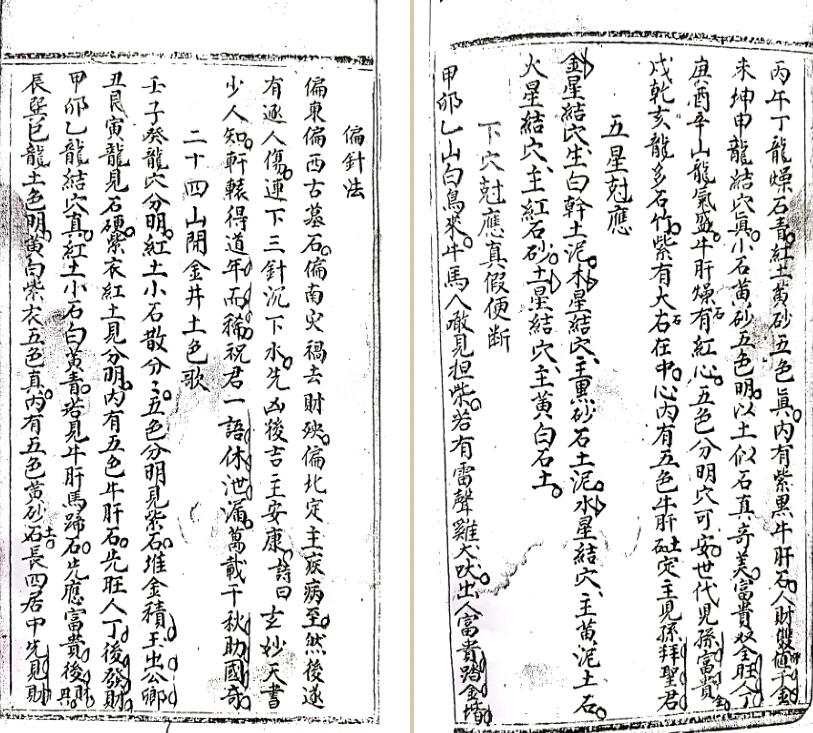 偏針法
偏東偏西古墓石偏南火禍去財殃偏北定主疾病至然後逐
有逐人傷連下三針沉下水先凶後吉主安康詩曰玄妙天書
少人知軒轅得道年而稀祝君一語休泄漏萬載千秋助國奇
二十四山開金井土色歌
壬子癸龍穴分明紅土小石散分〻五色分明見紫石堆金積玉出公卿
丑艮寅龍見石硬紫衣紅土見分明內有五色牛肝石先旺人丁後發財
甲卯乙龍結穴真紅土小石白黃青若見牛肝馬蹄石先應富貴後財興
辰巽巳龍土色明黃白紫衣五色真內有五色黃砂石土長四居中先見財
丙午丁龍燥石青紅土黃砂五色真內有紫黑牛肝石人財雙值千金
未坤申龍結穴真小石黃砂五色明以土似石真奇美富貴双全旺人丁
庚酉辛山龍氣盛牛肝燥石有紅心五色分明穴可安世代兒孫富貴金
戌乾亥龍多石竹紫有大右石在中心內有五色牛肝砡定主見孫拜聖君
五星尅應
金星結穴生白幹土泥木星結穴主黑砂石土泥水星結穴主黃泥土石
火星結穴主紅石砂土星結穴主黃白石土
下穴尅應真假便斷
甲卯乙山白鳥來牛馬入敢見担柴若有雷聲雞犬吠出人富貴踏金堦